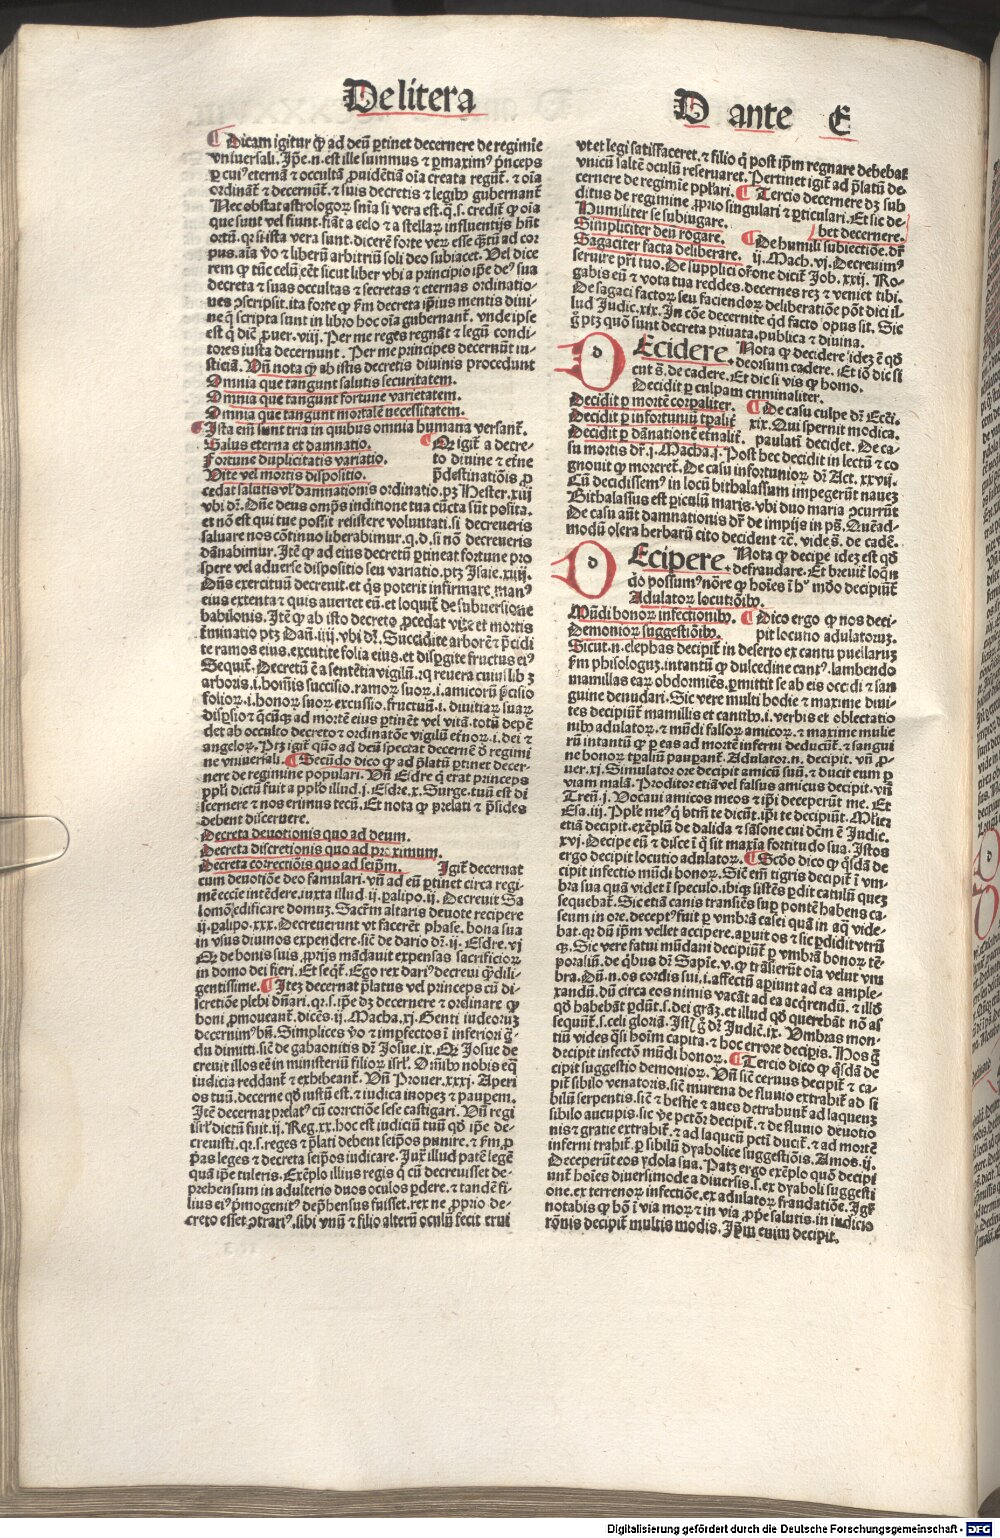 De litera
D ante E
¶ Dicam igitur ꝙ ad deū ꝑtinet decernere de regimīe
vniuersali. Ip̄e.n.est ille summus ⁊ ꝑmaximꝰ p̄nceps
ꝑ cuiꝰ eternā ⁊ occultā ꝓuidētiā oīa creata regūt. ⁊ oīa
ordināt ⁊ decernūt. ⁊ suis decretis ⁊ legibꝰ gubernant̄
Nec obstat astrologoꝝ snīa si vera est.q.s.credūt ꝙ oīa
que sunt vel fiunt. fiāt a celo ⁊ a stellaꝝ influentijs hn̄t
ortū. qꝛ si ista vera sunt. dicerē forte veꝝ esse q̄tū ad cor
pus. aīa ꝟo ⁊ liberū arbitriū soli deo subiacet. Vel dice
rem ꝙ tūc celū eēt sicut liber vbi a principio ip̄e deꝰ sua
decreta ⁊ suas occultas ⁊ secretas ⁊ eternas ordinatio-
ues ꝯscripsit. ita forte ꝙ ẜm decreta ip̄ius mentis diui-
ne q̄ scripta sunt in libro hoc oīa gubernant̄. vnde ipse
est q̄ dic̄ ꝓuer.viij. Per me reges regnāt ⁊ legū condi-
tores iusta decernunt. Per me principes decernūt iu-
sticiā. Vn̄ nota ꝙ ab istis decretis diuinis procedunt
Omnia que tangunt salutis securitatem.
Omnia que tangunt fortune varietatem.
Omnia que tangunt mortalē necessitatem.
¶ Ista em̄ sunt tria in quibus omnia humana versant̄.
Salus eterna et damnatio. ¶ Qꝛ igit̄ a decre-
Fortune duplicitatis variatio. to diuine ⁊ et̄ne
Vite vel mortis dispositio. p̄destinatiōis ꝓ
cedat salutis vl̓ damnationis ordinatio. ptꝫ Hester.xiij
vbi dr̄. Dn̄e deus omp̄s inditione tua cūcta sūt posita.
et nō est qui tue possit resistere voluntati. si decreueris
saluare nos cōtinuo liberabimur.q.d.si nō decreueris
dānabimur. Itē ꝙ ad eius decretū ꝑtineat fortune pro
spere vel aduerse dispositio seu variatio. ptꝫ Isaie.xiiij.
Dn̄s exercituū decreuit. et q̄s poterit infirmare. manꝰ
eius extenta ⁊ quis auertet eū. et loquit̄ de subuersione
babilonis. Itē ꝙ ab isto decreto ꝓcedat vite et mortis
t̄minatio ptꝫ Dan̄.iiij.vbi dr̄. Succidite arborē ⁊ p̄cidi
te ramos eius. excutite folia eius. et disꝑgite fructus eiꝰ
Sequit̄. Decretū ē a sentētia vigilū. rq reuera cuiuslibꝫ
arboris.i.hoīnis succisio. ramoꝝ suoꝝ.i.amicorū p̄cisio
folioꝝ.i.honoꝝ suoꝝ excussio. fructuū.i.diuitiaꝝ suaꝝ
disꝑsio ⁊ q̄cūqꝫ ad mortē eius ꝑtinēt vel vitā. totū depē
det ab occulto decreto ⁊ ordinatōe vigilū et̄noꝝ.i.dei ⁊
angeloꝝ. Ptꝫ igit̄ quō ad deū spectat decerne̅ d̄ regimi
ne vniuersali. ¶ Secūdo dico ꝙ ad p̄latū ꝑtinet decer-
nere de regimine populari. Vn̄ Esdre q̄ erat princeps
ppl̓i dictū fuit a pplo illud.j.Esdre.x. Surge. tuū est di
scernere ⁊ nos erimus tecū. Et nota ꝙ prelati ⁊ p̄sides
debent discernere.
Decreta deuotionis quo ad deum.
Decreta discretionis quo ad proximum.
Decreta correctiōis quo ad seip̄m. Igit̄ decernat
cum deuotiōe deo famulari. vn̄ ad eū ꝑtinet circa regi-
mē eccīe intēdere. iuxta illud.ij.ꝑalipo.ij. Decreuit Sa
lomō edificare domuꝫ. Sacr̄m altaris deuote recipere
ij.ꝑalipo.xxx. Decreuerunt vt facerēt phase. bona sua
in vsus diuinos expendere. sic̄ de dario dr̄.ij.Esdre.vj
Qꝛ de bonis suis, ꝓprijs mādauit expensas sacrificioꝝ
in domo dei fieri. Et seqt̄. Ego rex dariꝰ decreui q̄ dili-
gentissime. ¶ Iteꝫ decernat p̄latus vel princeps cū di-
scretiōe plebi dn̄ari.qꝛ.s.ip̄e dꝫ decernere ⁊ ordinare ꝙ
boni ꝓmoueant̄. dicēs.ij.Macha.xj. Genti iudeoruꝫ
decernimꝰ bn̄. Simplices ꝟo ⁊ imꝑfectos ī inferiori ḡ-
du dimitti. sic̄ de gabaonitis dr̄ Josue.ix. Qꝛ Josue de
creuit illos eē in ministeriū filioꝝ isrl̓. Oīnibꝰ nobis eq̄
iudicia reddant̄ ⁊ exhibeant̄. Vn̄ Prouer.xxxj. Aperi
os tuū. decerne qd̓ iustū est. ⁊ iudica inopeꝫ ⁊ pauꝑem.
Itē decernat prelatꝰ cū correctiōe sese castigari. Vn̄ regi
isrl̓ dictū fuit.ij.Reg.xx. hoc est iudiciū tuū qd̓ ip̄e de-
creuisti.qꝛ.s.reges ⁊ p̄lati debent seip̄os punire. ⁊ ẜm ꝓ
pꝛas leges ⁊ decreta seip̄os iudicare. Iux̄ illud patē legē
quā ip̄e tuleris. Exēplo illius regis q̄ cū decreuisset de-
prehensum in adulterio duos oculos ꝑdere. ⁊ tandē fi-
lius eiꝰ p̄mogenitꝰ dep̄hensus fuisset. rex ne ꝓprio de-
creto esset ꝯtrariꝰ. sibi vnū ⁊ filio alterū oculū fecit erui
vt et legi satisfaceret. ⁊ filio q̄ post ip̄m regnare debebat
vnicū saltē oculū reseruaret. Pertinet igit̄ ad p̄latū de-
cernere de regimīe ppl̓ari. ¶ Tercio decernere dꝫ sub
ditus de regimine ꝓprio singulari ⁊ ꝑticulari. Et sic de-
Humiliter se subiugare. bet decernere.
Simpliciter deū rogare. ¶ De humili subiectiōe. dr̄
Sagaciter facta deliberare. ij.Mach.vj. Decreuimꝰ
seruire pr̄i tuo. De supplici or̄one dicit̄ Job.xxij. Ro-
gabis eū ⁊ vota tua reddes. decernes reꝫ ⁊ veniet tibi.
De sagaci factoꝝ seu faciendoꝝ deliberatiōe pōt dici il-
lud Judic.xix. In cōe decernite qd̓ facto opus sit. Sic
g̊ ptꝫ quō sunt decreta priuata. publica ⁊ diuina.
d
Ecidere. Nota ꝙ decidere ideꝫ ē qd̓
deorsum cadere. Et iō dic si
cut s̄. de cadere. Et dic si vis ꝙ homo.
Decidit ꝑ culpam criminaliter.
Decidit ꝑ mortē corꝑaliter. ¶ De casu culpe dr̄ Ecc̄i.
Decidit ꝑ infortuniū tꝑalit̄. xix. Qui spernit modica.
Decidit ꝑ dānationē et̄nalit̄. paulati̅ decidet. De ca-
su mortis dr̄.j.Macha.j. Post hec decidit in lectū ⁊ co
gnouit ꝙ moreret̄. De casu infortunioꝝ dr̄ Act.xxvij.
Cū decidissemꝰ in locū bithalassum impegerūt naueꝫ
Bithalassus est ꝑiculū maris. vbi duo maria ꝯcurrūt
De casu aūt damnationis dr̄ de impijs in ps̄. Quēad-
modū olera herbarū cito decident ⁊c̄. vide s̄. de cadē.
d
Ecipere. Nota ꝙ decipe̅ ideꝫ est qd̓
defraudare. Et breuit̄ loqn̄
do possumꝰ nōre ꝙ hoīes ī hͦ mūdo decipiūt̄
Adulatoꝝ locutiōibꝰ.
Mūdi honoꝝ infectionibꝰ. ¶ Dico ergo ꝙ nos deci-
Demonioꝝ suggestiōibꝰ. pit locutio adulatoruꝫ.
Sicut.n.elephas decipit̄ in deserto ex cantu puellaruꝫ
ẜm phisologuꝫ. intantū ꝙ dulcedine cantꝰ. lambendo
mamillas eaꝝ obdormiēs. ꝑmittit se ab eis occidi ⁊ san
guine denudari. Sic vere multi hodie ⁊ maxime diui-
tes decipiūt̄ mamillis et cantibꝰ.i.verbis et oblectatio
nibꝰ adulatoꝝ. ⁊ mūdi falsoꝝ amicoꝝ. ⁊ maxime mulie
rū intantū ꝙ ꝑ eas ad mortē inferni deducūt̄. ⁊ sangui
ne bonoꝝ tꝑaliū pauꝑant̄. Adulatoꝝ.n.decipit. vn̄ ꝓ-
uer.xj. Simulator ore decipit amicū suū. ⁊ ducit eum ꝑ
viam malā. Proditor etiā vel falsus amicus decipit. vn̄
Tren̄.j. Vocaui amicos meos ⁊ ip̄i deceperūt me. Et
Esa.iij. Pple̅ meꝰ q̄ btm̄ te dicūt. ip̄i te decipiūt. Ml̓ieꝝ
etiā decipit. exēplū de dalida ⁊ sāsone cui dc̄m ē Judic.
xvj. Decipe eū ⁊ disce ī q̊ sit maxīa fortitudo sua. Istos
ergo decipit locutio adulatoꝝ. ¶ Scdo dico ꝙ q̄sdā de
cipit infectio mūdi honoꝝ. Sic̄ em̄ tigris decipit̄ ī vm-
bra sua quā videt ī speculo. ibiqꝫ sistēs ꝑdit catulū queꝫ
sequebat̄. Sic etiā canis transiēs suꝑ pontē habens ca-
seum in ore. deceptꝰ fuit ꝑ vmbrā casei quā in aq̄ vide-
bat. qꝛ dū ip̄m vellet accipere. aꝑuit os ⁊ sic ꝑdidit vtrū
qꝫ. Sic vere fatui mūdani decipiūt̄ ꝑ vmbrā honoꝝ tē-
poraliū. de q̄bus dr̄ Sapīe.v. ꝙ trāsierūt oīa velut vm
bra. Dū.n.os cordis sui.i.affectū aꝑiunt ad ea ample-
xandū. dū circa eos nimis vacāt ad ea acq̄rendū. ⁊ illd̓
qd̓ habebāt ꝑdūt.s.dei grāꝫ. et illud qd̓ querebāt nō as
sequunt̄.s.celi gloriā. Isti g̊ dr̄ Judic̄.ix. Vmbras mon-
tiū vides q̄si hoīm capita. ⁊ hoc errore deciꝑis. Hos g̊
decipit infectio mūdi honoꝝ. ¶ Tercio dico ꝙ q̄sdā de
cipit suggestio demonioꝝ. Vn̄ sic̄ ceruus decipit̄ ⁊ ca-
pit̄ sibilo venatoris. sic̄ murena de fluuio extrahit̄ ad si
bilū serpentis. sic̄ ⁊ bestie ⁊ aues detrahunt̄ ad laqueuꝫ
sibilo aucupis. sic ve pctōr decipit̄. ⁊ de fluuio deuotio
nis ⁊ gratie extrahit̄. ⁊ ad laqueū pcti ducit̄. ⁊ ad mortē
inferni trahit̄. ꝑ sibilū dyabolice suggestiōis. Amos.ij.
Deceperūt eos ydola sua. Patꝫ ergo exēplo quō decipi
unt̄ hoīes diuersimode a diuersis.s.ex dyaboli suggesti
one. ex terrenoꝝ infectiōe. ex adulatoꝝ fraudatiōe. Igit̄
notabis ꝙ hō ī via moꝝ ⁊ in via ꝓpe̅ salutis. in iudicio
rōnis decipit̄ multis modis. Ip̄m enim decipit.
Digitalisierung gefördert durch die Deutsche Forschungsgemeinschaft - DFG